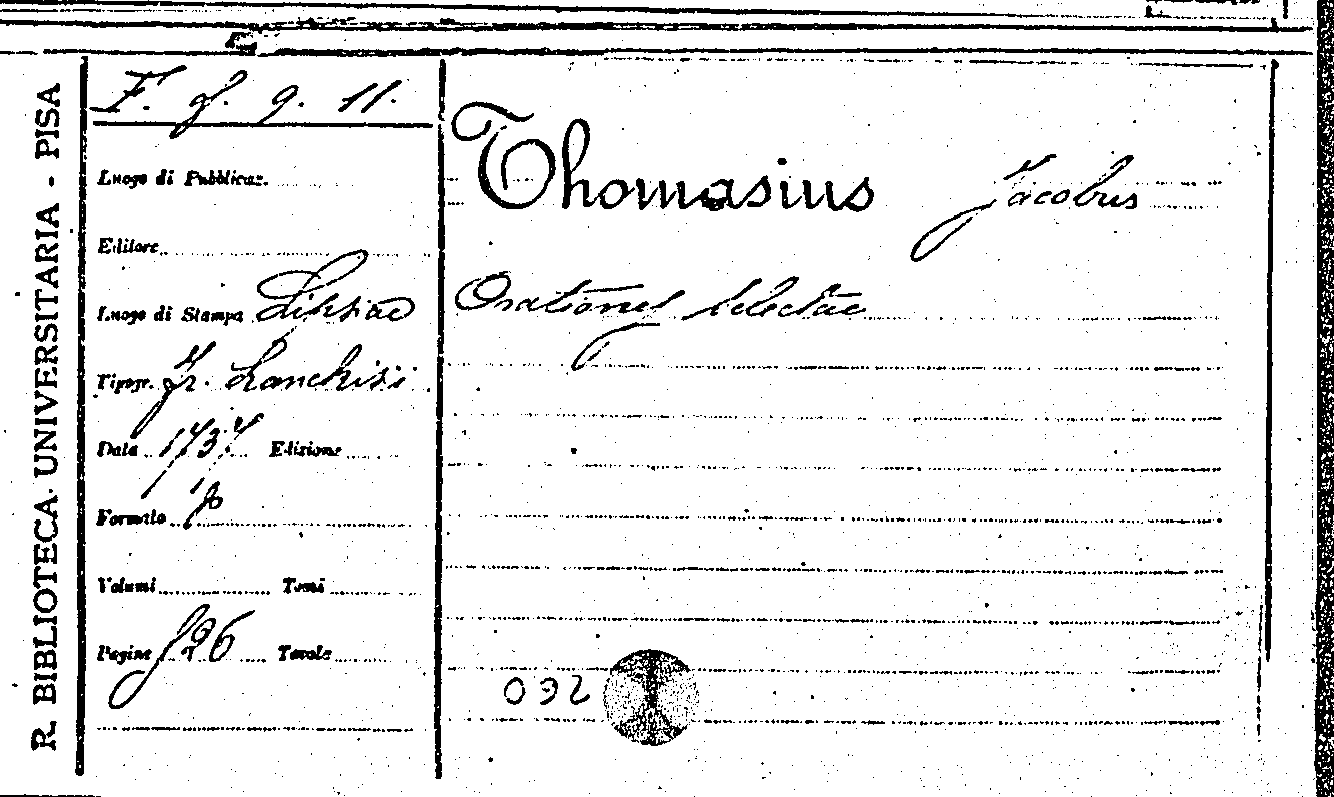 R. BIBLIOTECA UNIVERSITARIA - PISA
F. f. 9. 11.
Luogo di Pubblicaz.
Editore
Luogo di Stampa Lipsiae
Tipogr. Fr. Lanchisi
Data 1737 Edizione
Formato
Volumi Tomi
Pagine 596 Tavole
Thomasius Jacobus
Orationes selectae
032